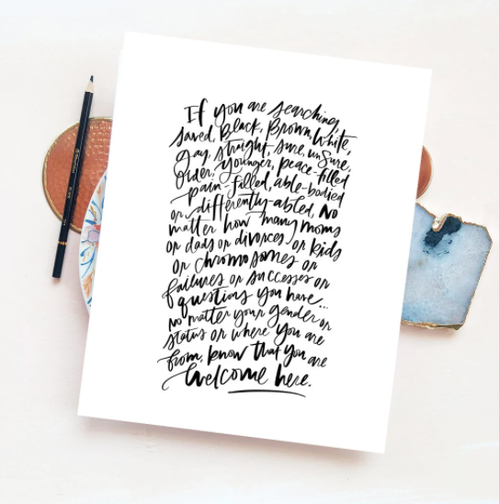 If you are searching,
saved, Black, Brown, White,
gay, straight, sure, unsure,
older, younger, peace-filled
pain-filled, able-bodied
or differently-abled, no
matter how many moms
or dads or divorces or kids
or chromosomes or
failures or successes or
questions you have...
no matter your gender or
status or where you are
from, know that you are
welcome here.